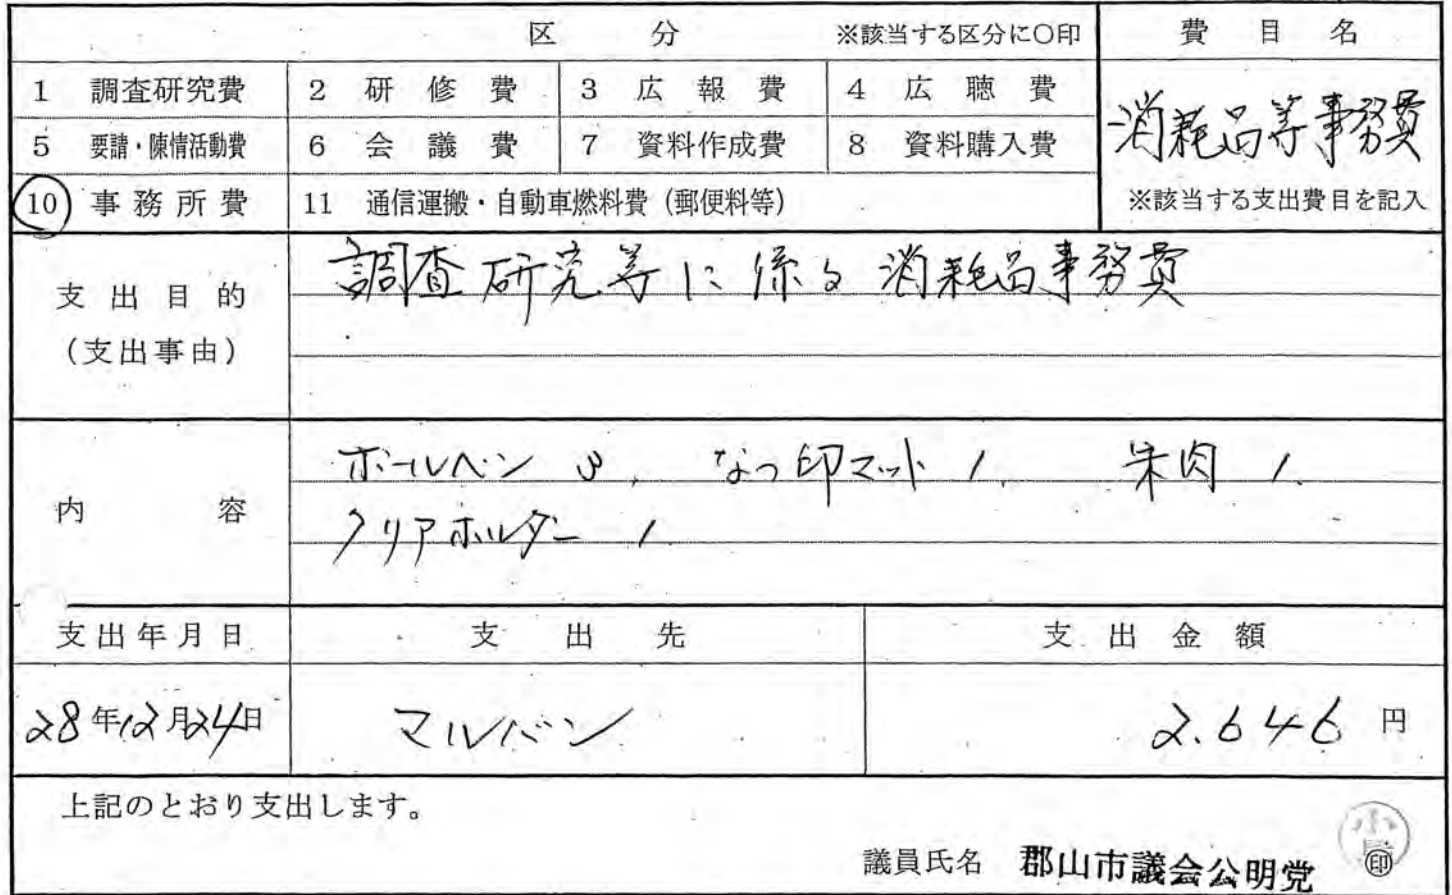 区分 ※該当する区分に〇印 費目名
1 調査研究費 2 研修費 3 広報費 4 広聴費
消耗品等事務費
5 要請・陳情活動費 6 会議費 7 資料作成費 8 資料購入費
10 事務所費 11 通信運搬・自動車燃料費（郵便料等） ※該当する支出費目を記入
支出目的
（支出事由）
調査研究等に係る消耗品事務費
内容
ボールペン 3, なつ印マット 1. 朱肉 1.
クリアホルダー 1
支出年月日 支出先 支出金額
28年12月24日 マルバン 2.646円
上記のとおり支出します。
議員氏名 郡山市議会公明党 ㊞